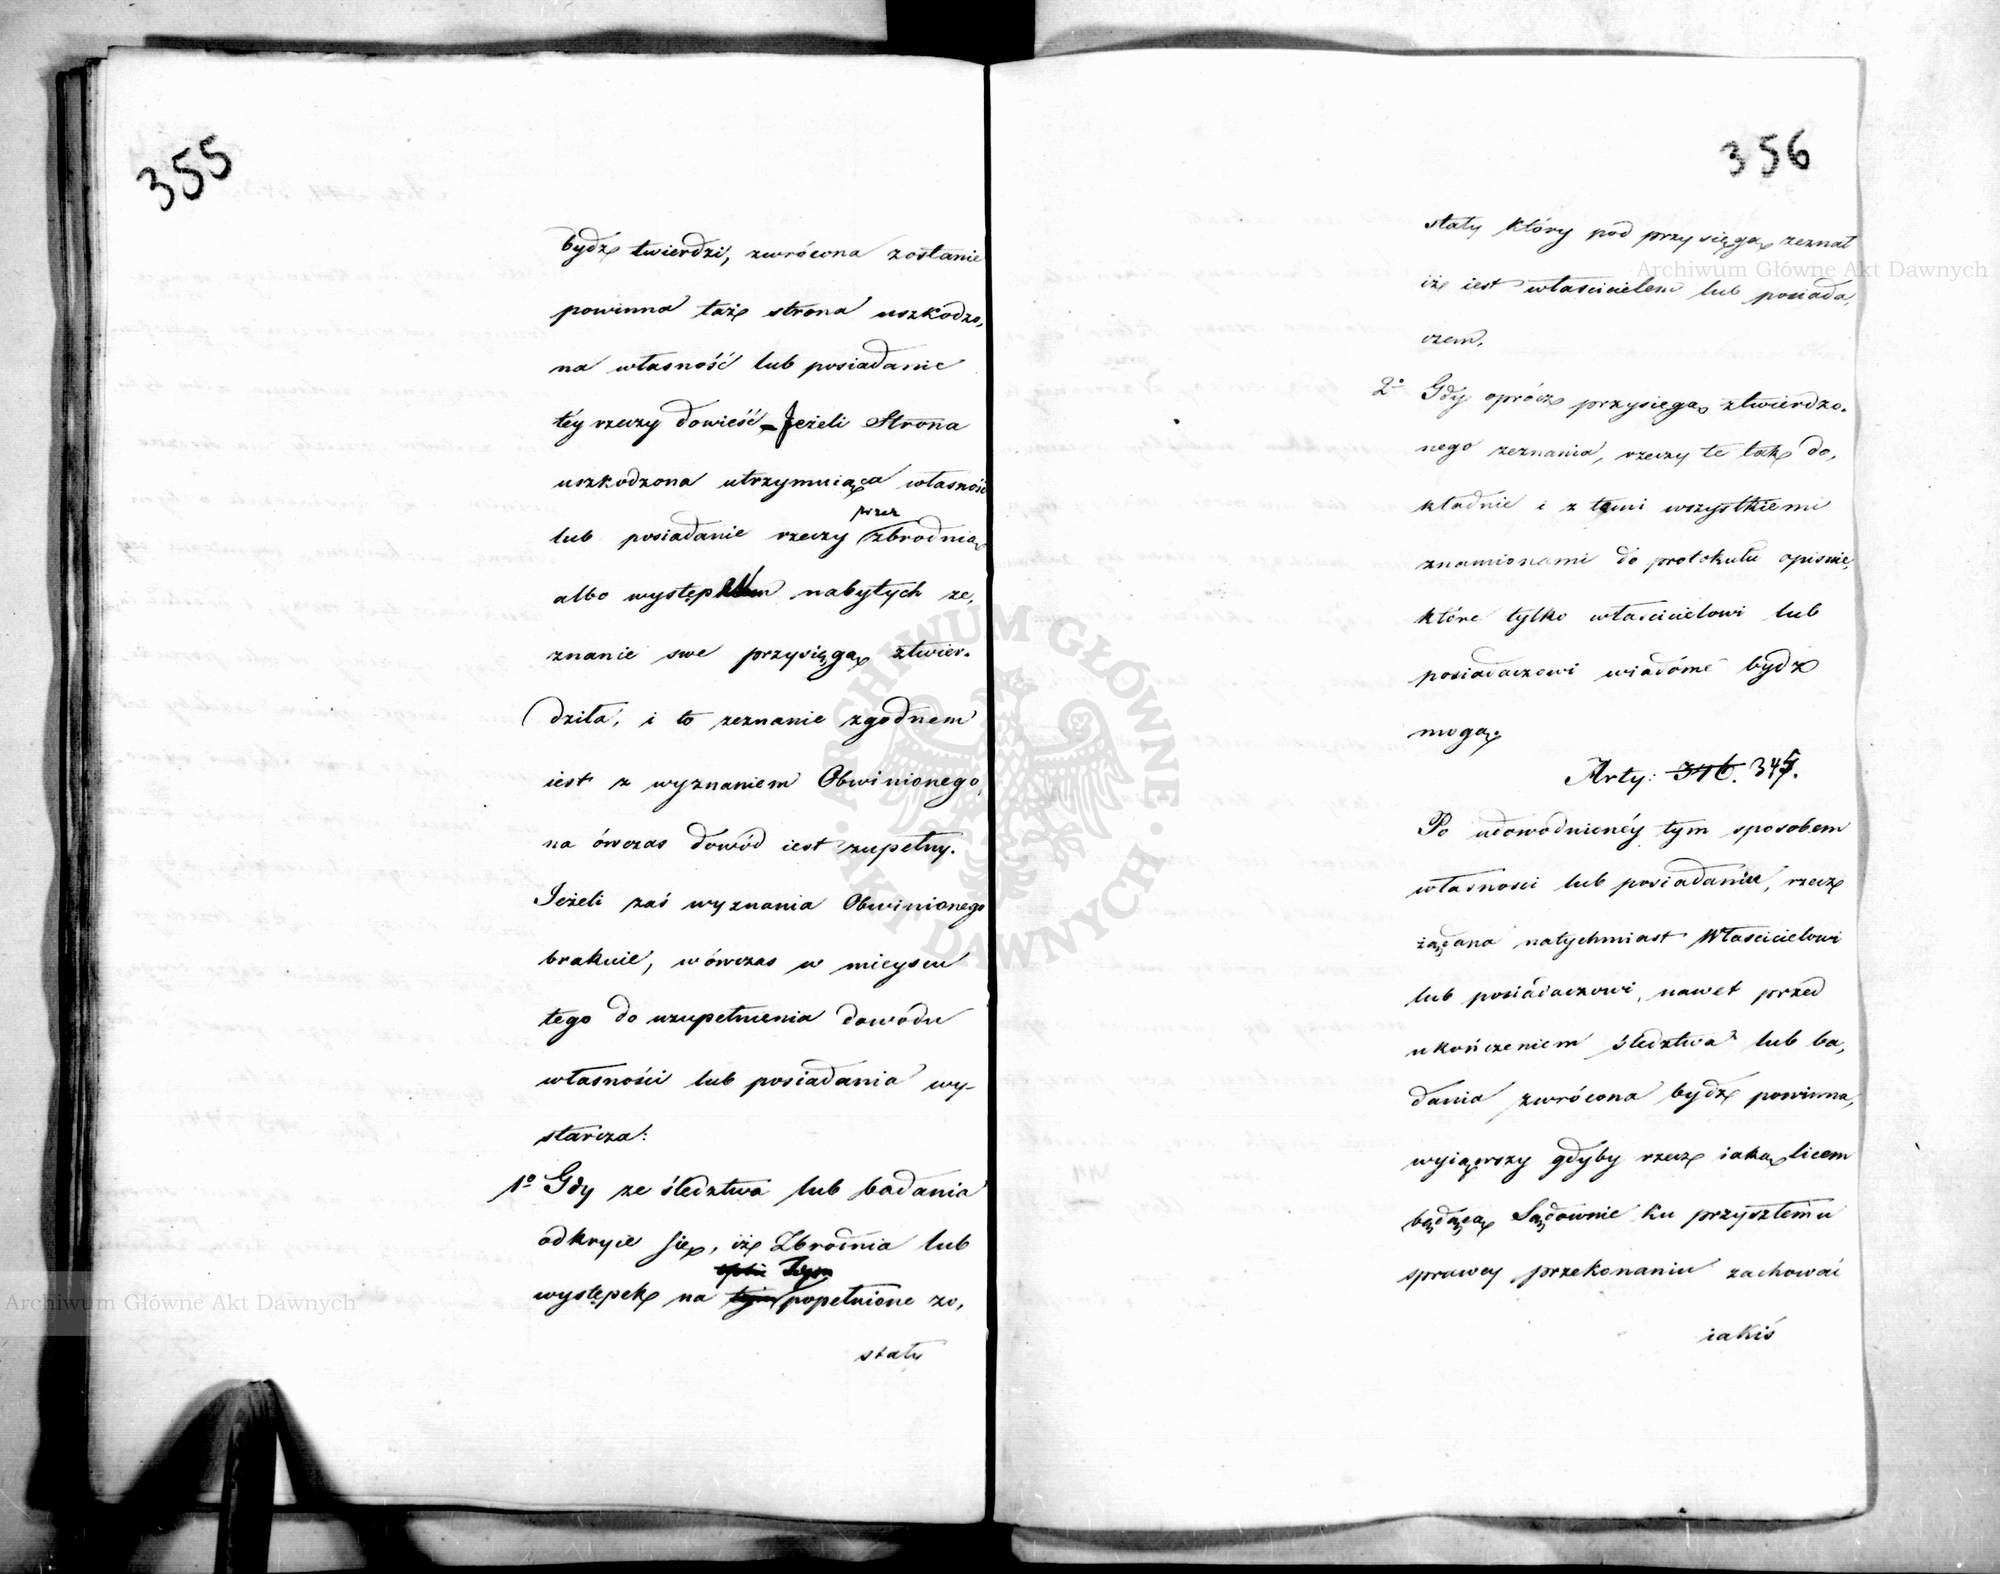 355
bydź twierdzi, zwrócona zostanie
powinna taż strona uszkodzo,
na własność lub posiadanie
téy rzeczy dowieść – Jeżeli Strona
uszkodzona utrzymuiąca własność
przez
lub posiadanie rzeczy zbrodnią
albo występkiem nabytych ze,
znanie swe przysięgą ztwier.
dziła, i to zeznanie zgodnem
iest z wyznaniem Obwinionego,
na ówczas dowód iest zupełny.
Ieżeli zaś wyznania Obwinionego
brakuie, wówczas w mieyscu
tego do uzupełnienia dowodu
własności lub posiadania wy-
starcza:
1º Gdy ze śledztwa lub badania
odkryie się, iż Zbrodnia lub
występek na popełnione zo,
stały
356
stały który pod przysięgą zeznał
iż iest właścicielem lub posiada,
czem.
2º Gdy oprócz przysięgą ztwierdzo.
nego zeznania, rzeczy te tak do,
kładnie i z temi wszystkiemi
znamionami do protokułu opisze,
które tylko właścicielowi lub
posiadaczowi wiadome bydź
mogą.
Arty: 346. 345.
Po udowodnionéy tym sposobem
własności lub posiadaniu, rzecz
żądana natychmiast Właścicielowi
lub posiadaczowi, nawet przed
ukończeniem śledztwa lub ba,
dania zwrócona bydź powinna,
wyiąwszy gdyby rzecz iaką licem
będącą Sądownie ku przyszłemu
sprawcy przekonaniu zachować
iakiś
Archiwum Główne Akt Dawnych
Archiwum Główne Akt Dawnych
ARCHIWUM GŁÓWNE · AKT DAWNYCH ·